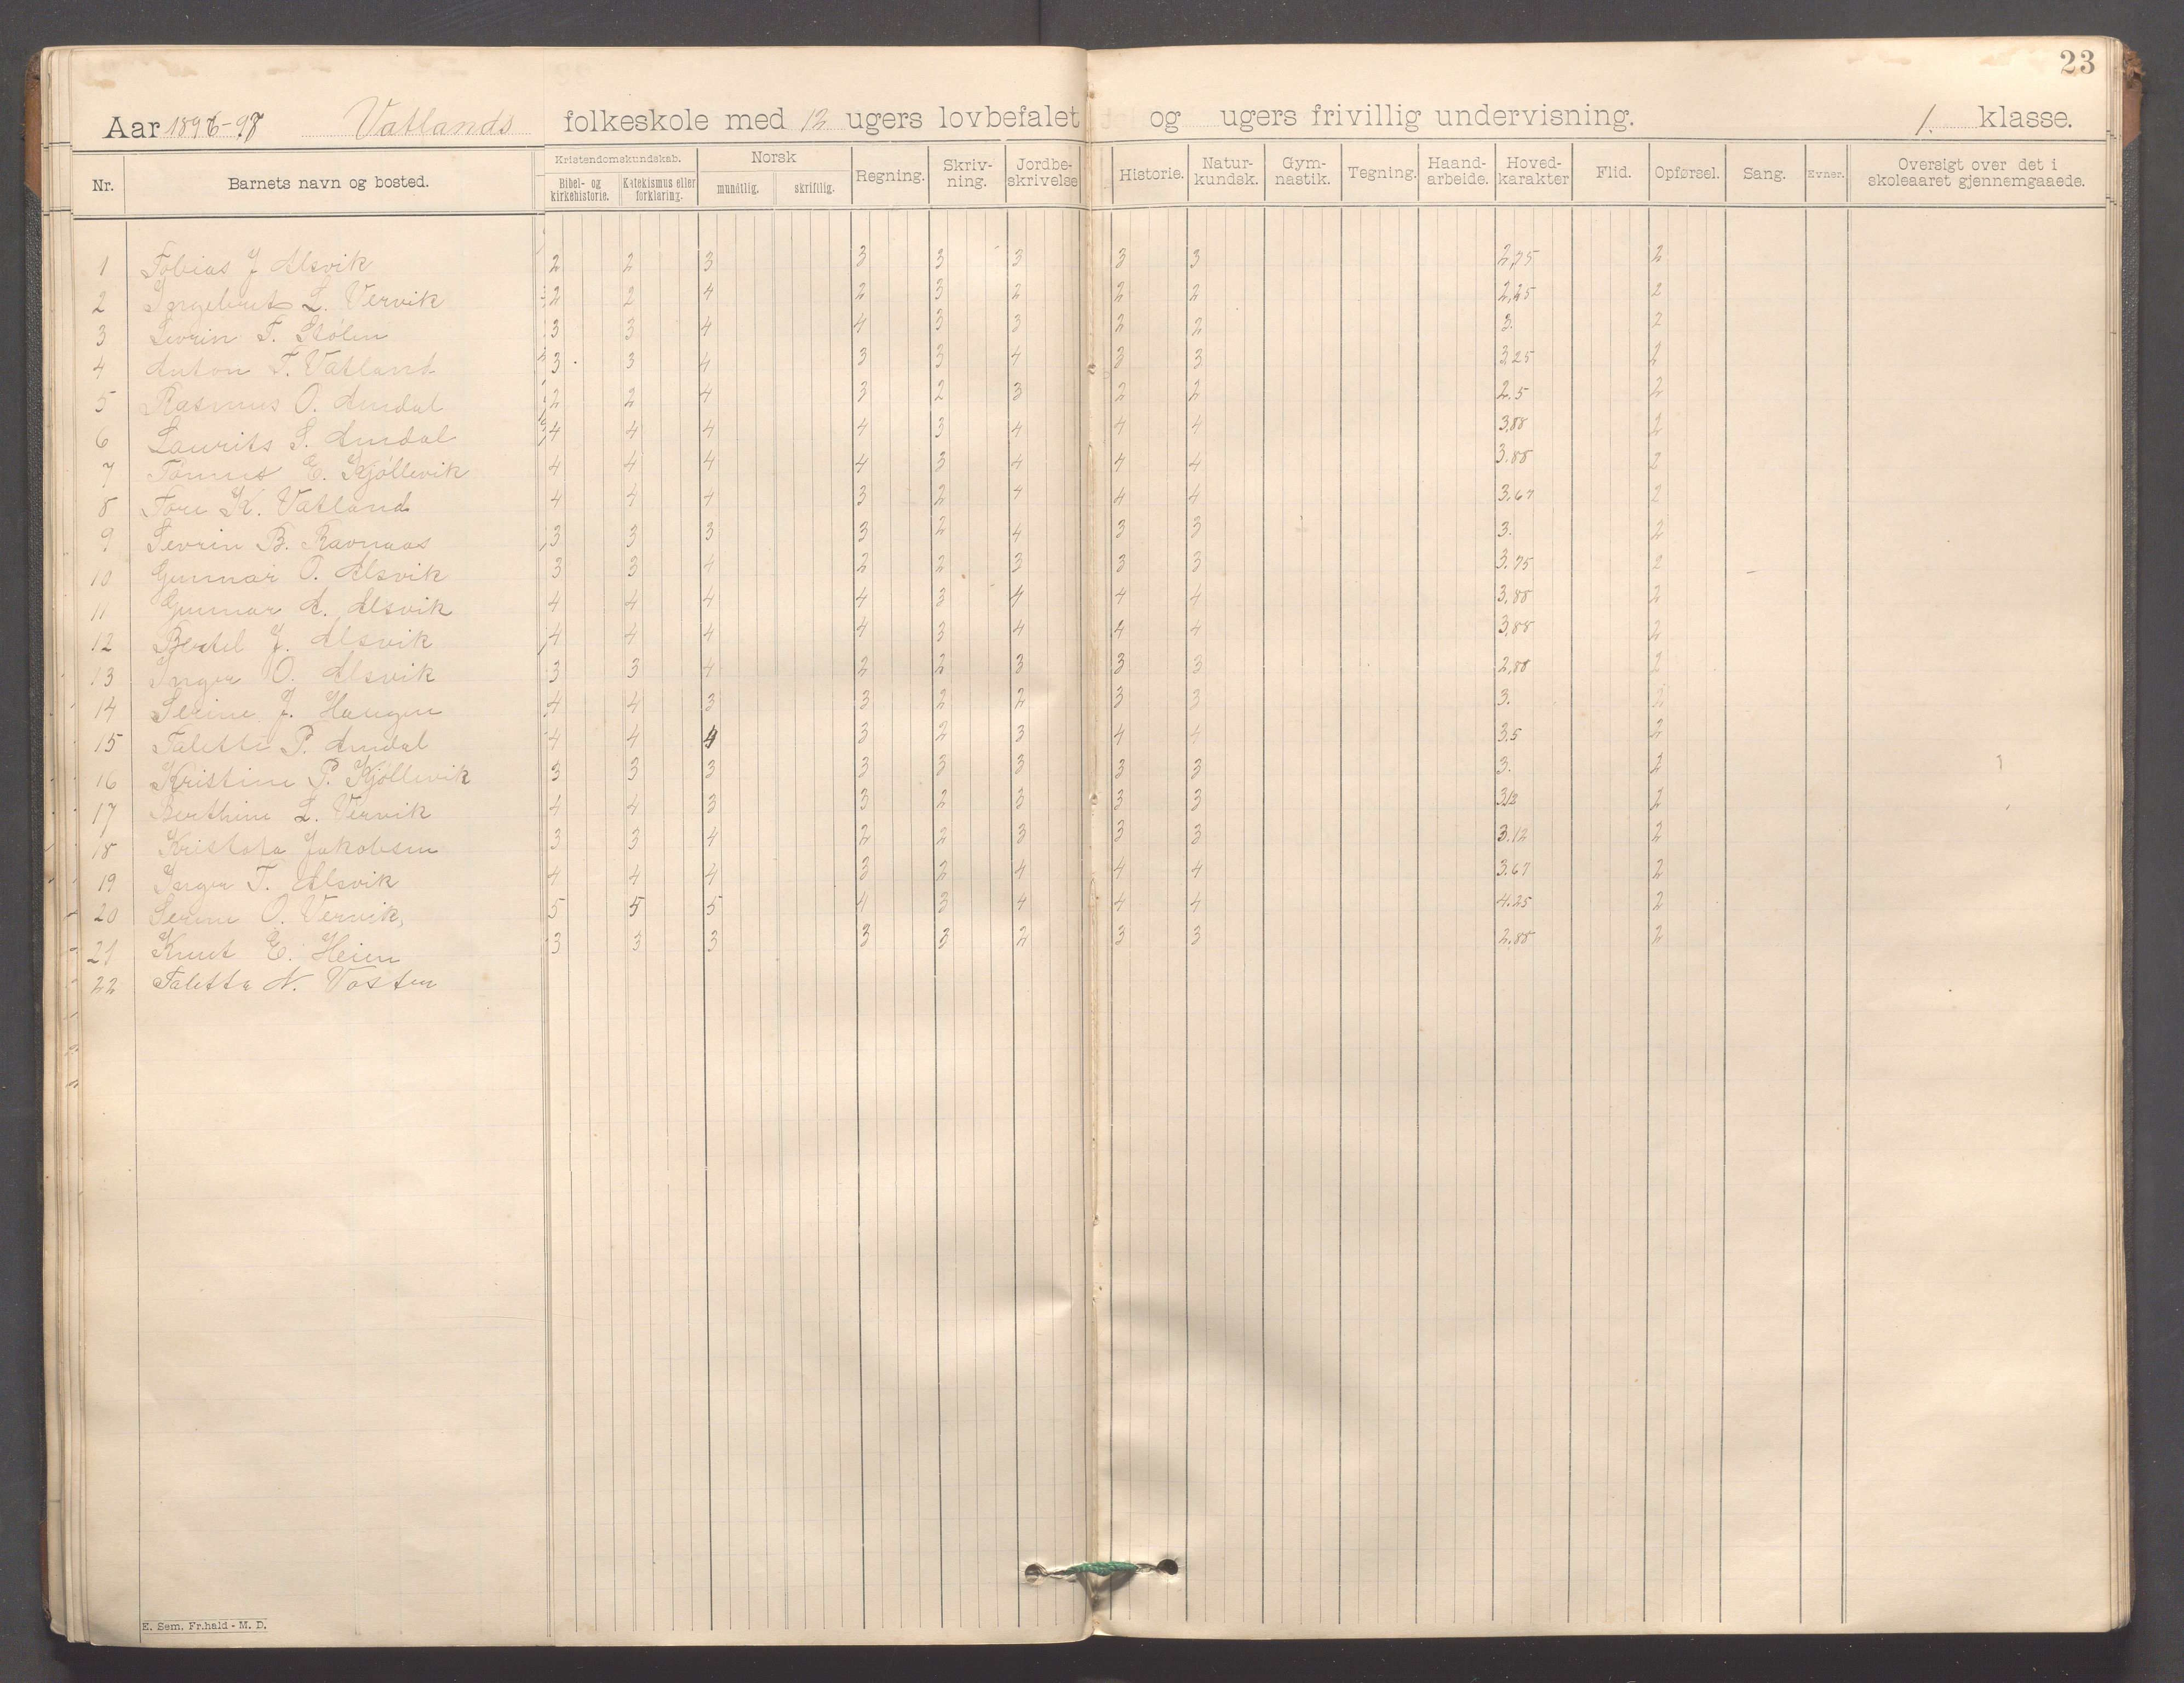 23
Aar 1896-97 Vatlands folkeskole med 12 ugers lovbefalet og ugers frivillig undervisning. 1. klasse.
Nr. Barnets navn og bosted. Kristendomskundskab. Bibel- og kirkehistorie. Katekismus eller forklaring. Norsk mundtlig. skriftlig. Regning. Skriv-ning. Jordbe-skrivelse Historie. Natur-kundsk. Gym-nastik. Tegning. Haand-arbeide. Hoved-karakter Flid. Opførsel. Sang. Evner. Oversigt over det i skoleaaret gjennemgaaede.
1 Tobias J Alsvik 2 2 3 3 3 3 3 3 2,75 2
2 Ingebret L. Vervik 2 2 4 2 3 2 2 2 2,25 2
3 Sevrin T. Stølen 3 3 4 4 3 3 2 2 3. 2
4 Anton T. Vatland 3 3 4 3 3 4 3 3 3,25 2
5 Rasmus O. Amdal 2 2 4 3 2 3 2 2 2.5 2
6 Laurits S. Amdal 4 4 4 4 3 4 4 4 3,88 2
7 Tønnes E. Kjøllevik 4 4 4 4 3 4 4 4 3.88 2
8 Tore K. Vatland 4 4 4 3 2 4 4 4 3.67 2
9 Sevrin B. Ravnaas 3 3 3 3 2 4 3 3 3. 2
10 Gunnar O. Alsvik 3 3 4 2 2 3 3 3 3.75 2
11 Gunnar A. Alsvik 4 4 4 4 3 4 4 4 3,88 2
12 Bertel J. Alsvik 4 4 4 4 3 4 4 4 3,88 2
13 Inger O. Alsvik 3 3 4 2 2 3 3 3 2,88 2
14 Serine J. Haugen 4 4 3 3 2 2 3 3 3. 2
15 Taletta P. Amdal 4 4 4 3 2 3 4 4 3.5 2
16 Kristine P. Kjøllevik 3 3 3 3 3 3 3 3 3. 2
17 Berthine L. Vervik 4 4 3 3 2 3 3 3 3.12 2
18 Jakobsen 3 3 4 2 2 3 3 3 3.12 2
19 Inger T. Alsvik 4 4 4 3 2 4 4 4 3.67 2
20 Serine O. Vervik, 5 5 5 4 3 4 4 4 4.25 2
21 Knut E. Heien 3 3 3 3 3 2 3 3 2.88 2
22 Taletta N. Vasten
E. Sem, Fr.hald - M. D.